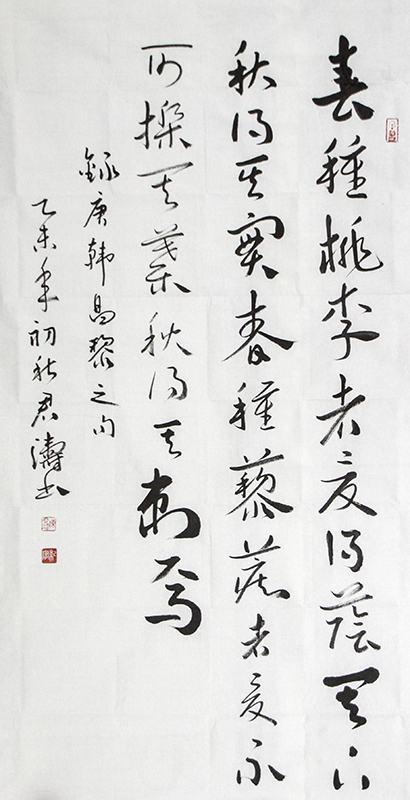 春種桃李者夏得蔭其下
秋得其實春種藜蒺者夏不
可採其葉秋得其刺焉
錄唐韓昌黎之句
乙未年初秋君濤书